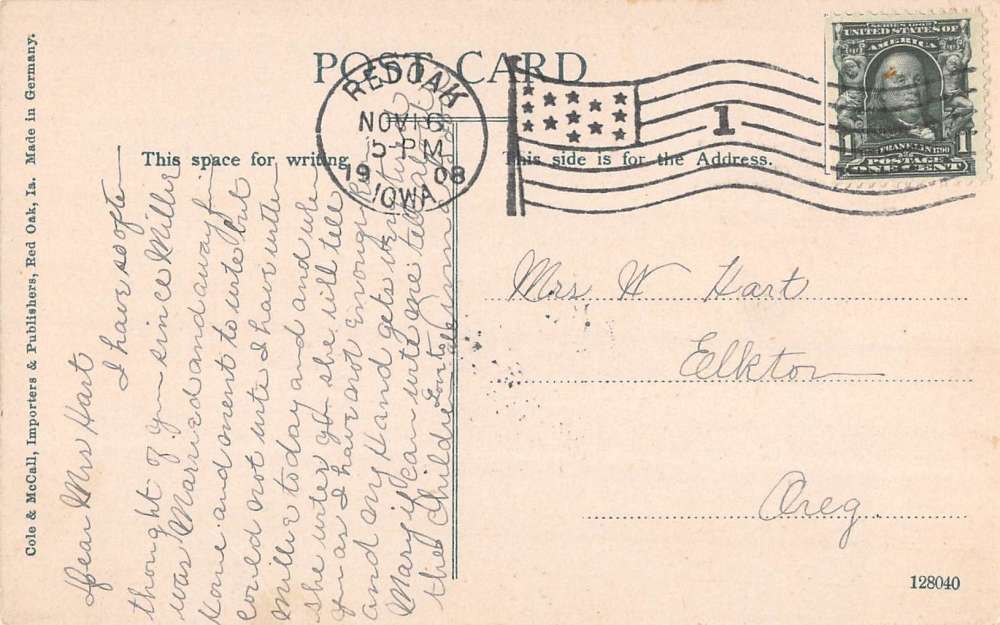 POST CARD
Cole & McCall, Importers & Publishers, Red Oak, Ia. Made in Germany.
RED OAK
NOV 16
5-PM
1908
IOWA
1
SERIES 1902
UNITED STATES OF
AMERICA
FRANKLIN 1790
1 POSTAGE 1
ONE CENT
This space for writing
This side is for the Address.
Dear Mrs Hart
I have so ofte
thought of you since Miller
was Married and away f
Home and ment to write but
could not write I have written
Mille today and and when
she writes you she will tell
you as I have not enough
and my Hand gets
Mary if can write me tell
the Childre
Mrs W Hart
Elkton
Oreg.
128040